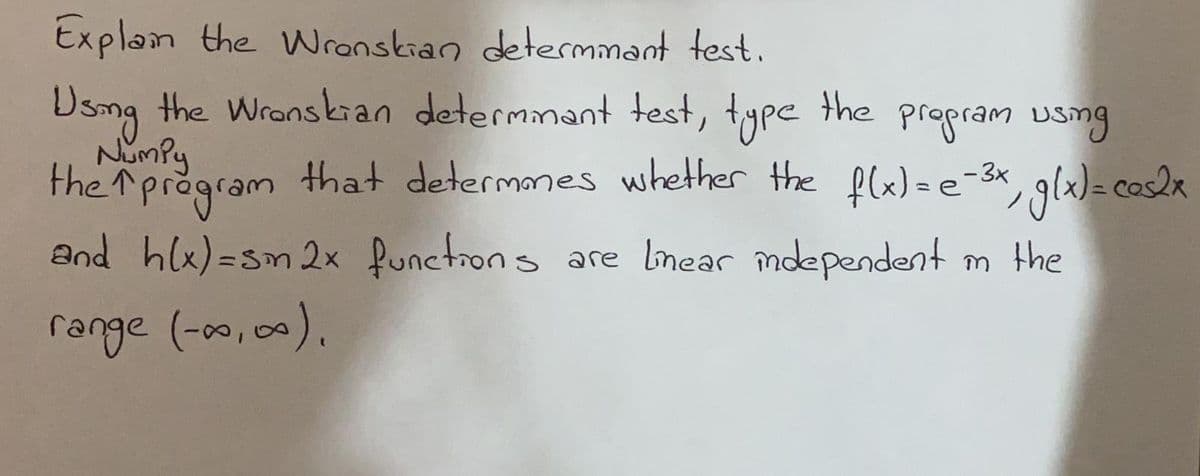 Explain the Wronskian determinant test.
Using the Wronskian determinant test, type the program using
NumPy
the ↑ program that determines whether the f(x) = e^-3x, g(x) = cos2x
and h(x) = sin 2x functions are linear independent in the
range (-∞, ∞).